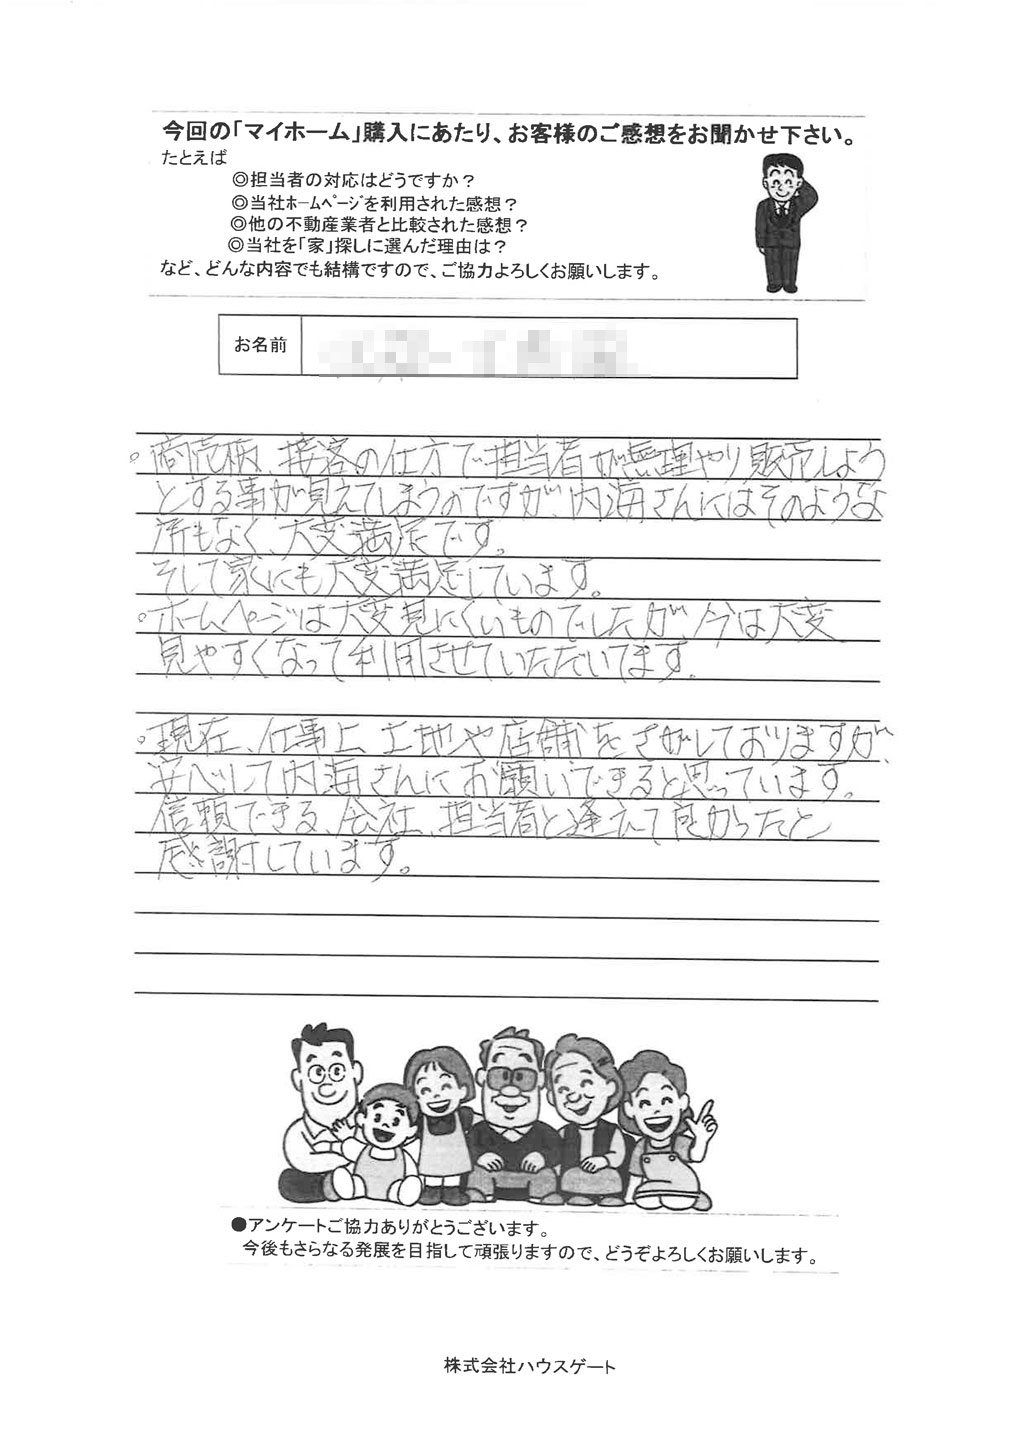 今回の「マイホーム」購入にあたり、お客様のご感想をお聞かせ下さい。
たとえば
◎担当者の対応はどうですか？
◎当社ﾎｰﾑﾍﾟｰｼﾞを利用された感想？
◎他の不動産業者と比較された感想？
◎当社を「家」探しに選んだ理由は？
など、どんな内容でも結構ですので、ご協力よろしくお願いします。
お名前
。商売柄、接客の仕方で担当者が無理やり販売しよう
とする事が見えてしまうのですが、内海さんにはそのような
所もなく、大変満足です。
そして家にも大変満足しています。
。ホームページは大変見にくいものでしたが今は大変
見やすくなって利用させていただいてます。
。現在、仕事上土地や店舗をさがしておりますが、
安心して内海さんにお願いできると思っています。
信頼できる、会社、担当者と逢えて良かったと
感謝しています。
●アンケートご協力ありがとうございます。
今後もさらなる発展を目指して頑張りますので、どうぞよろしくお願いします。
株式会社ハウスゲート